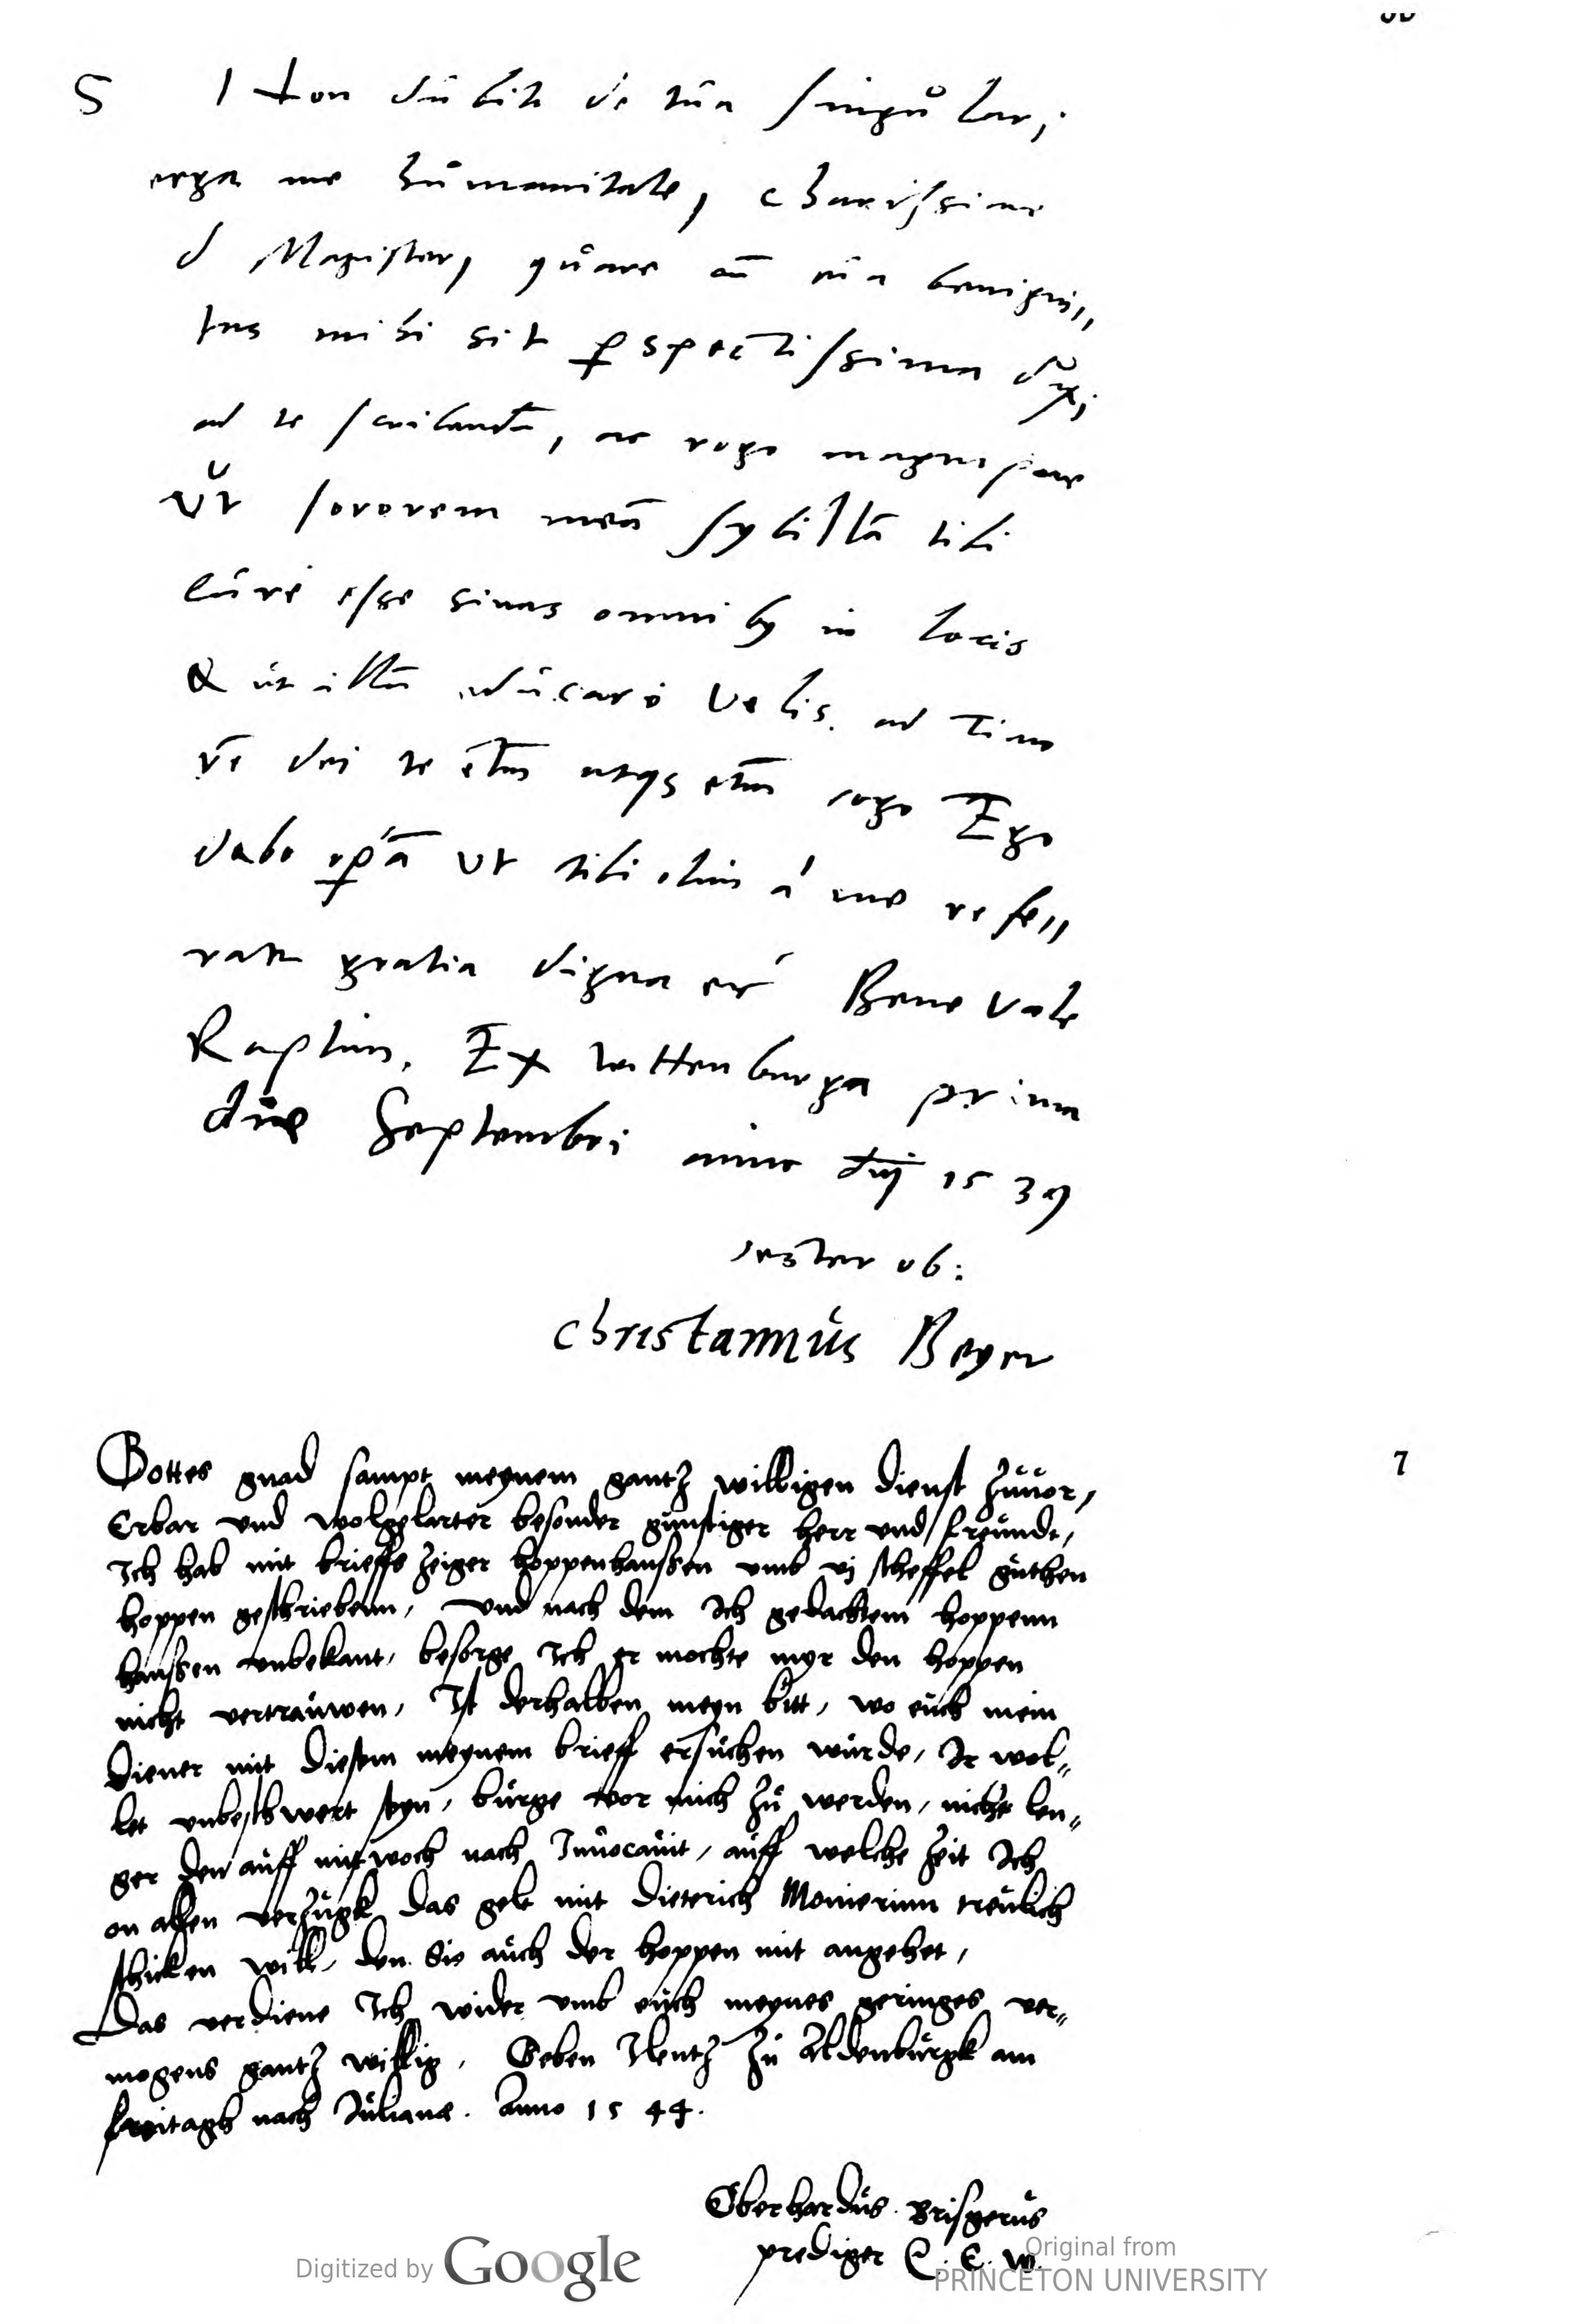 S Non dubito de tua singulari
erga me humanitate, charissime
d Magister, quare cū eā benigni„
tas mihi sit ꝑspectissima duxi
ad te scribendū, ac rogo magnopere
ut sororem meā sybillā tibi
cure esse sinas omnibꝫ in locis
& ut illā educare velis ad timo
rē dei te etiā atqꝫ etiā rogo Ego
dabo oꝑā ut tibi olim á me refe„
ratur gratia digna Bene vale
Raptim. Ex wittenburga prima
die Septembri anno dnj 1539
vester ob:
christannus Beyer
7
Gottes gnad sampt meynem gantz willigen dienst zuuor,
Erbar vnd wolgelarter besonder gunstiger herr vnd freundt,
Ich hab mit brieffs zeiger hoppenhanssen vmb vj scheffel guthen
hoppen geschriebenn, vnd nach dem Ich gedachtem hoppenn
hanssen vnbekant, besorge Ich er mochte myr den hoppen
nicht vertrauwen, Ist derhalben meyn bitt, wo euch mein
diener mit diesem meynem brieff ersuchen wurde, Ir wol„
let vnbeschwert seyn, burge vor mich zu werden, nicht len„
ger den auff mitwoch nach Inuocauit, auff welche zeit Ich
on allen verzugk das gelt mit Dieterich Monierinn treulich
schicken will, den Sie auch der hoppen mit angehet,
Das verdiene Ich wider vmb euch meynes geringes ver„
mogens gantz willig, Geben Ilentz zu Aldenburgk am
freitagk nach Juliane. Anno 1544.
Eberhardus Brisgerus
prediger E. E. W.
Digitized by Google
Original from
PRINCETON UNIVERSITY